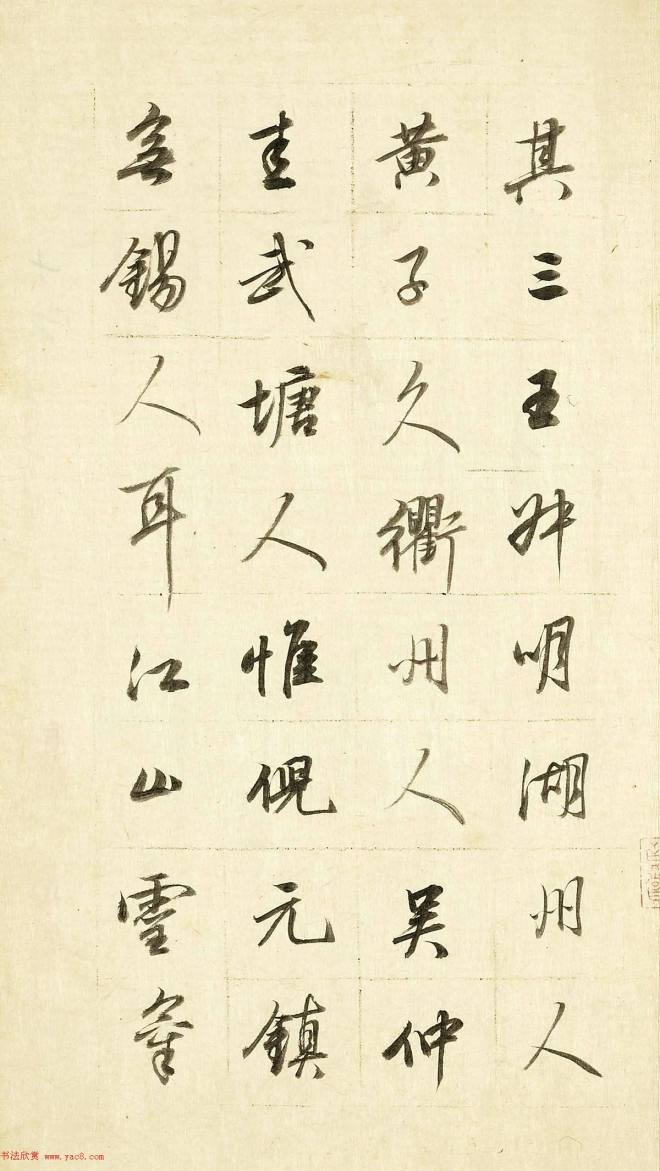 其三王叔明湖州人
黃子久衢州人吳仲
圭武塘人惟倪元鎮
無錫人耳江山靈氣
书法欣赏 www.yac8.com